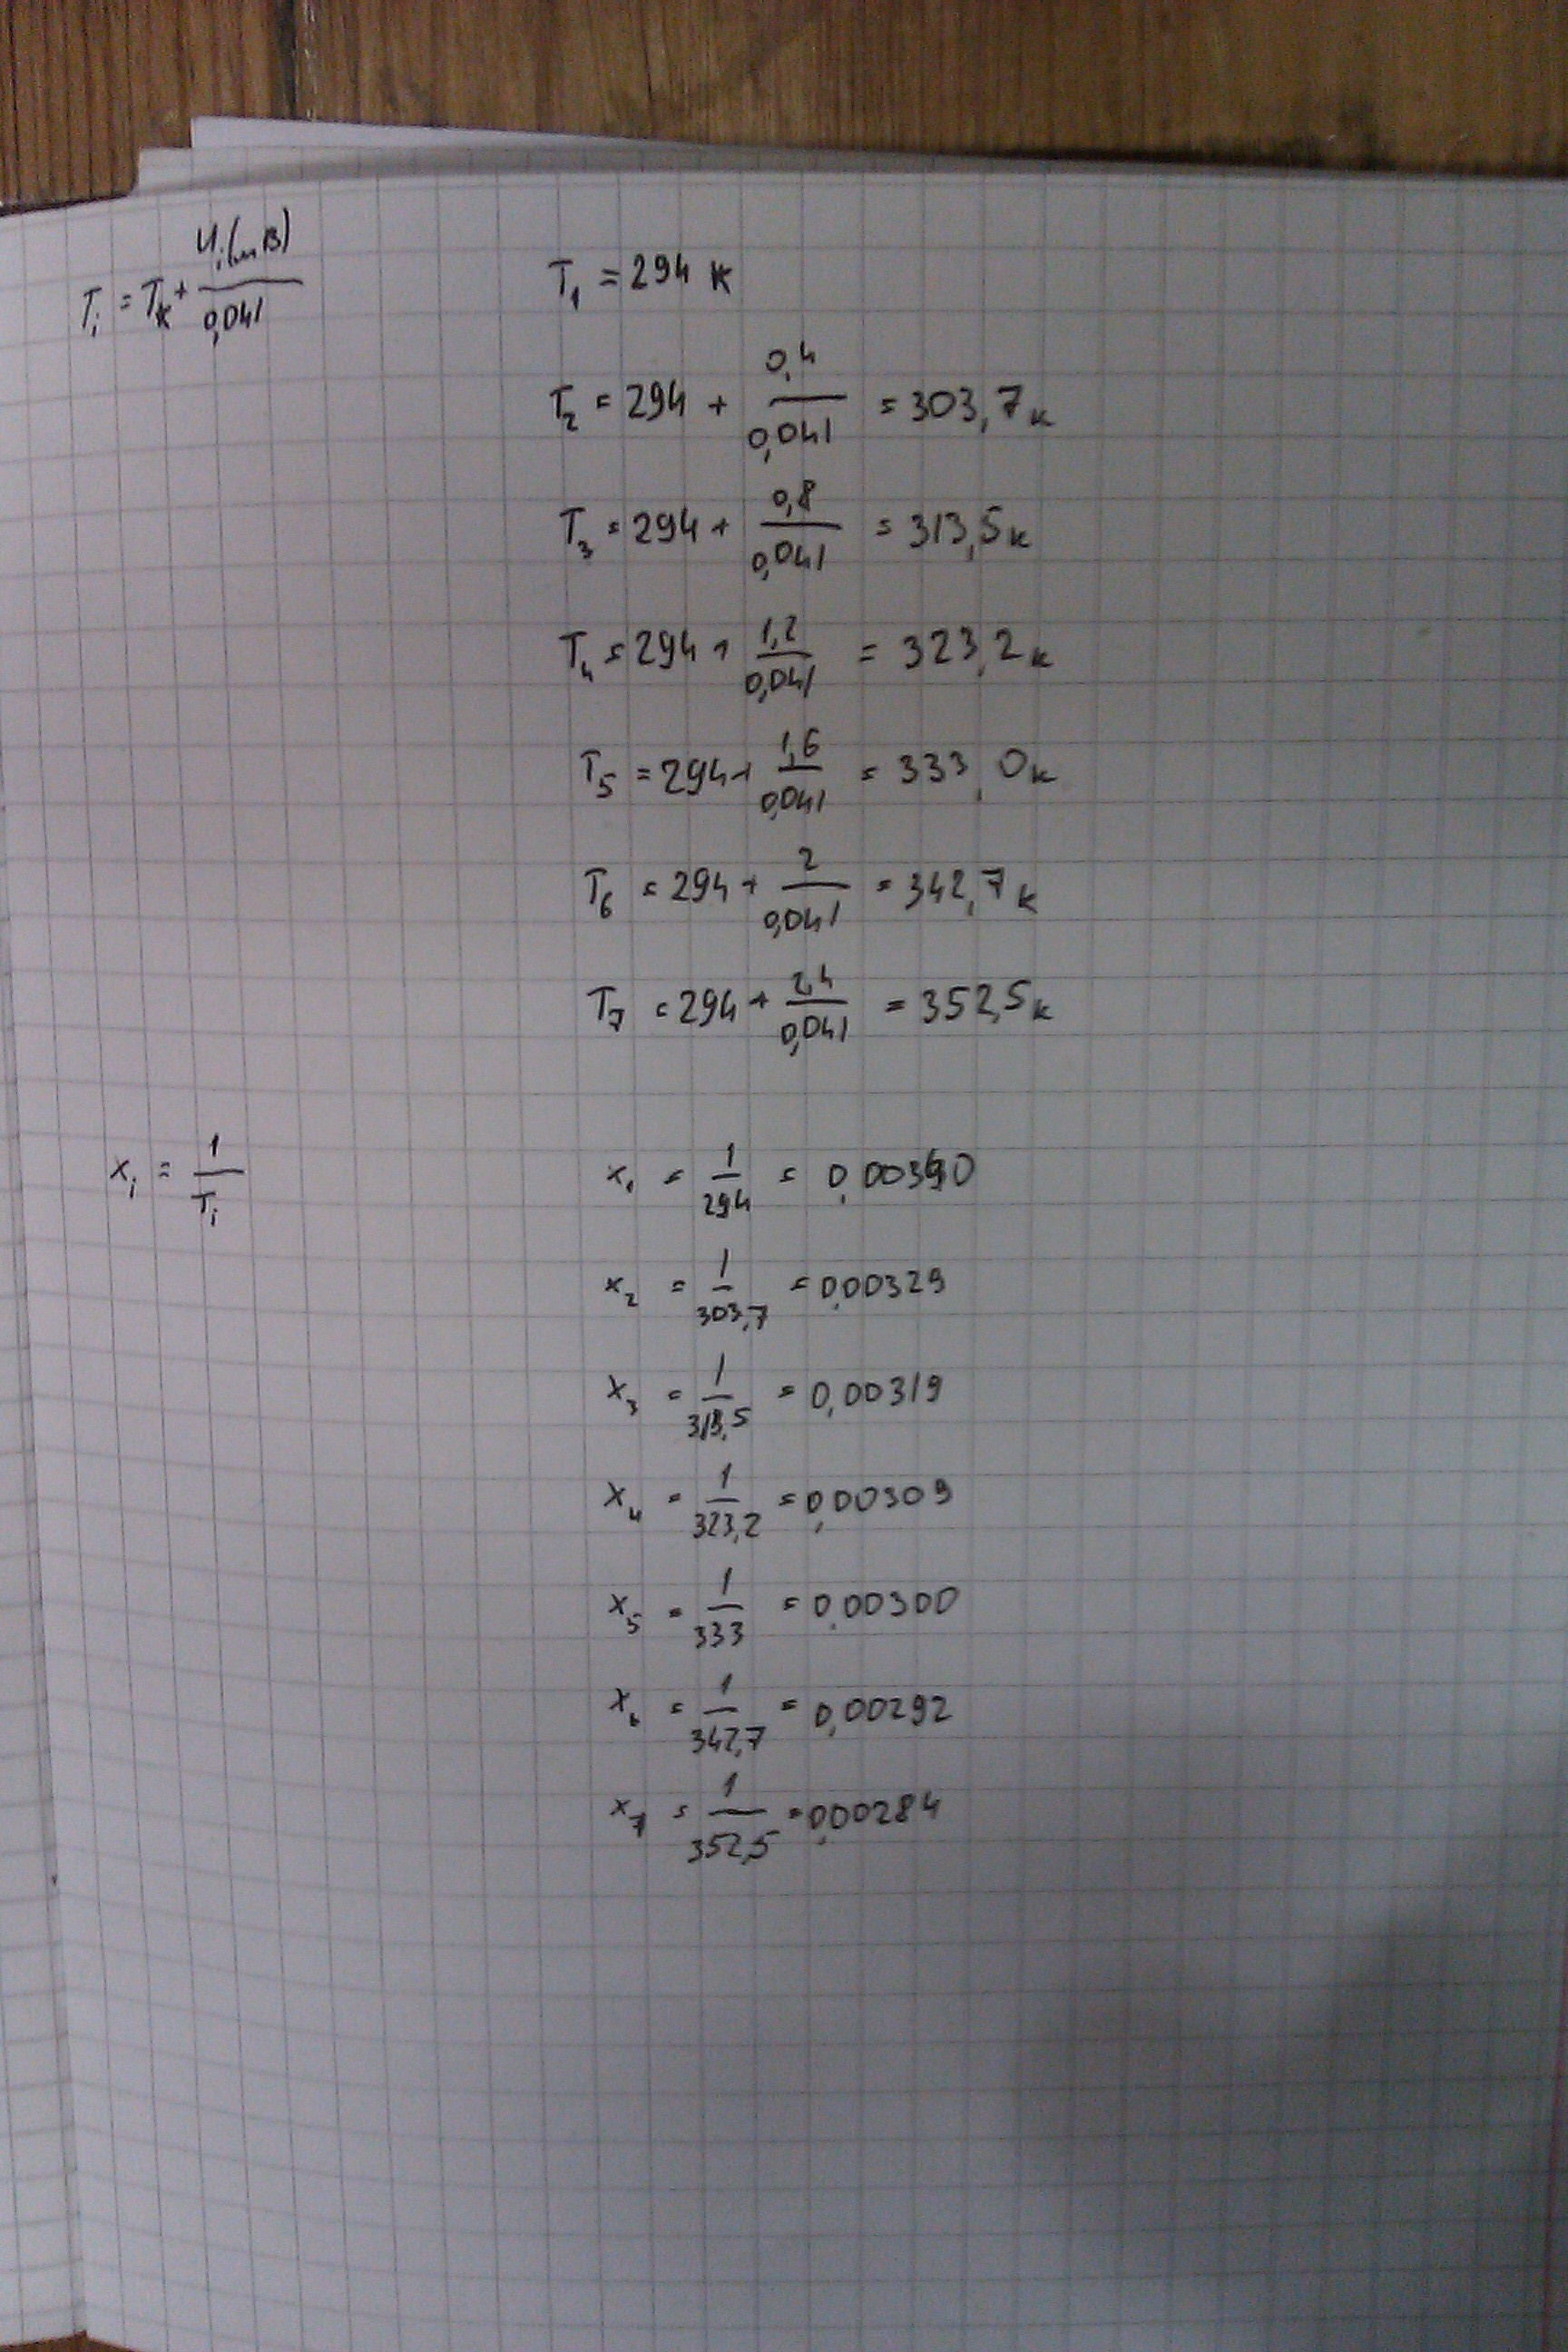 Tᵢ = Tₖ + Uᵢ(мВ) / 0,041
T₁ = 294 К
T₂ = 294 + 0,4 / 0,041 = 303,7 К
T₃ = 294 + 0,8 / 0,041 = 313,5 К
T₄ = 294 + 1,2 / 0,041 = 323,2 К
T₅ = 294 + 1,6 / 0,041 = 333,0 К
T₆ = 294 + 2 / 0,041 = 342,7 К
T₇ = 294 + 2,4 / 0,041 = 352,5 К
xᵢ = 1 / Tᵢ
x₁ = 1 / 294 = 0,00340
x₂ = 1 / 303,7 = 0,00329
x₃ = 1 / 313,5 = 0,00319
x₄ = 1 / 323,2 = 0,00309
x₅ = 1 / 333 = 0,00300
x₆ = 1 / 342,7 = 0,00292
x₇ = 1 / 352,5 = 0,00284